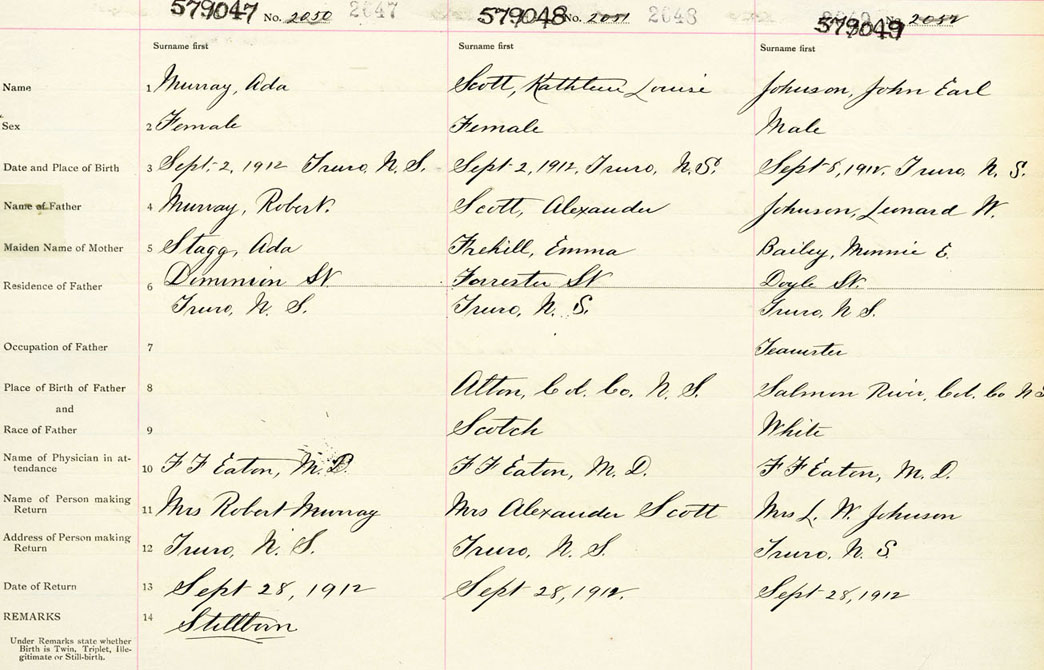 579047 No. 2050 2647 579048 No. 2051 2648 579049 No. 2052
Surname first Surname first Surname first
Name 1 Murray, Ada Scott, Kathleen Louise Johnson, John Earl
Sex 2 Female Female Male
Date and Place of Birth 3 Sept. 2, 1912 Truro, N. S. Sept 2, 1912, Truro, N.S. Sept 8, 1912, Truro, N. S.
Name of Father 4 Murray, Robert. Scott, Alexander Johnson, Leonard W.
Maiden Name of Mother 5 Stagg, Ada Frehill, Emma Bailey, Minnie E.
Residence of Father 6 Dominion St Forrester St Doyle St.
Truro, N. S. Truro, N. S. Truro, N S.
Occupation of Father 7 Teamster
Place of Birth of Father 8 Alton, Col. Co, N. S. Salmon River, Col. Co N S
and
Race of Father 9 Scotch White
Name of Physician in at-
tendance 10 F F Eaton, M. D. F F Eaton, M. D. F F Eaton, M. D.
Name of Person making
Return 11 Mrs Robert Murray Mrs Alexander Scott Mrs L. W. Johnson
Address of Person making
Return 12 Truro, N. S. Truro, N. S. Truro, N. S
Date of Return 13 Sept 28, 1912 Sept 28, 1912. Sept 28, 1912
REMARKS 14 Stillborn
Under Remarks state whether
Birth is Twin, Triplet, Ille-
gitimate or Still-birth.